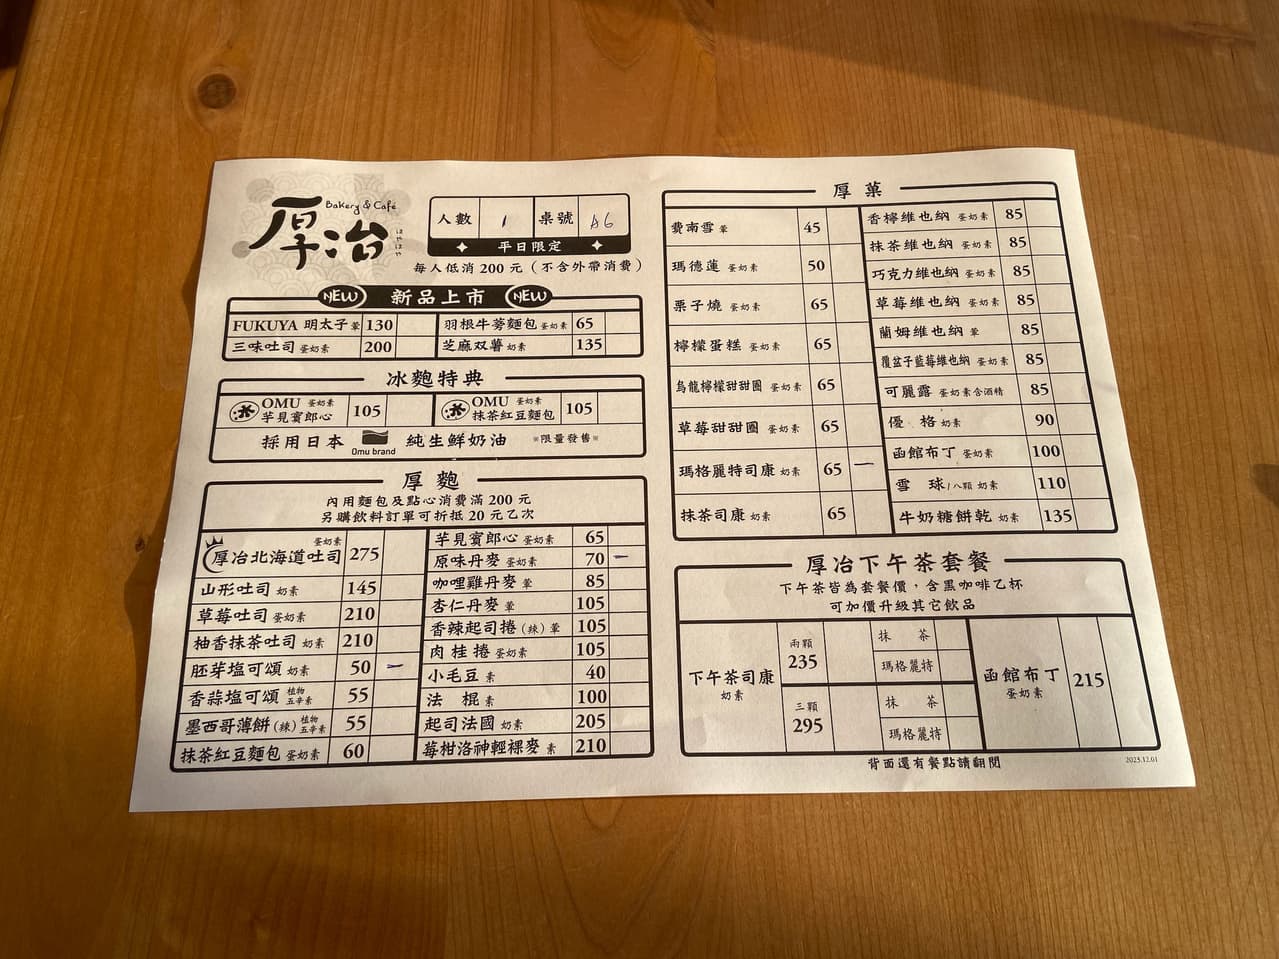 Bakery & Café
厚冶
はやはや
人數 1 桌號 A6
平日限定
每人低消 200 元 (不含外帶消費)
NEW 新品上市 NEW
FUKUYA 明太子 葷 130
羽根牛蒡麵包 蛋奶素 65
三味吐司 蛋奶素 200
芝麻双薯 奶素 135
冰麭特典
OMU 蛋奶素
芋見賓郎心 105
OMU 蛋奶素
抹茶紅豆麵包 105
採用日本 Omu brand 純生鮮奶油 *限量發售*
厚麭
內用麵包及點心消費滿 200 元
另購飲料訂單可折抵 20 元乙次
蛋奶素
厚冶北海道吐司 275
山形吐司 奶素 145
草莓吐司 蛋奶素 210
柚香抹茶吐司 奶素 210
胚芽塩可頌 奶素 50 一
香蒜塩可頌 植物五辛素 55
墨西哥薄餅(辣) 植物五辛素 55
抹茶紅豆麵包 蛋奶素 60
芋見賓郎心 蛋奶素 65
原味丹麥 蛋奶素 70 一
咖哩雞丹麥 葷 85
杏仁丹麥 葷 105
香辣起司捲(辣) 葷 105
肉桂捲 蛋奶素 105
小毛豆 素 40
法 棍 素 100
起司法國 奶素 205
莓柑洛神輕裸麥 素 210
厚菓
費南雪 葷 45
瑪德蓮 蛋奶素 50
栗子燒 蛋奶素 65
檸檬蛋糕 蛋奶素 65
烏龍檸檬甜甜圈 蛋奶素 65
草莓甜甜圈 蛋奶素 65
瑪格麗特司康 奶素 65 一
抹茶司康 奶素 65
香檸維也納 蛋奶素 85
抹茶維也納 蛋奶素 85
巧克力維也納 蛋奶素 85
草莓維也納 蛋奶素 85
蘭姆維也納 葷 85
覆盆子藍莓維也納 蛋奶素 85
可麗露 蛋奶素含酒精 85
優 格 奶素 90
函館布丁 蛋奶素 100
雪 球/八顆 奶素 110
牛奶糖餅乾 奶素 135
厚冶下午茶套餐
下午茶皆為套餐價,含黑咖啡乙杯
可加價升級其它飲品
下午茶司康
奶素
兩顆
235
抹 茶
瑪格麗特
三顆
295
抹 茶
瑪格麗特
函館布丁
蛋奶素
215
背面還有餐點請翻閱
2023.12.01